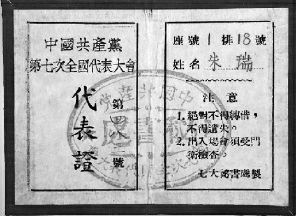 中國共產黨
第七次全國代表大會
代表證
第 號
座號 1 排 18 號
姓名 朱瑞
注意
1. 絕對不得轉借，
不得遺失。
2. 出入場會須受門
衛檢查。
七大秘書處製